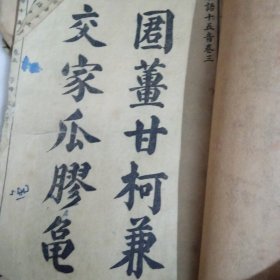 語十五音卷三
薑甘柯兼
交家瓜膠龜